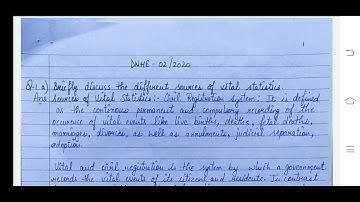 1
DNHE-02/2020
Q.1 a) Briefly discuss the different sources of vital statistics.
Ans Sources of Vital Statistics:- Civil Registration System: It is defined
as the continous permanent and compulsory recording of the
occurence of vital events like live births, deaths, fetal deaths,
marriages, divorces, as well as annulments, judicial separation,
adoption.
Vital and civil registration is the system by which a government
records the vital events of its citizens and residents. In contrast